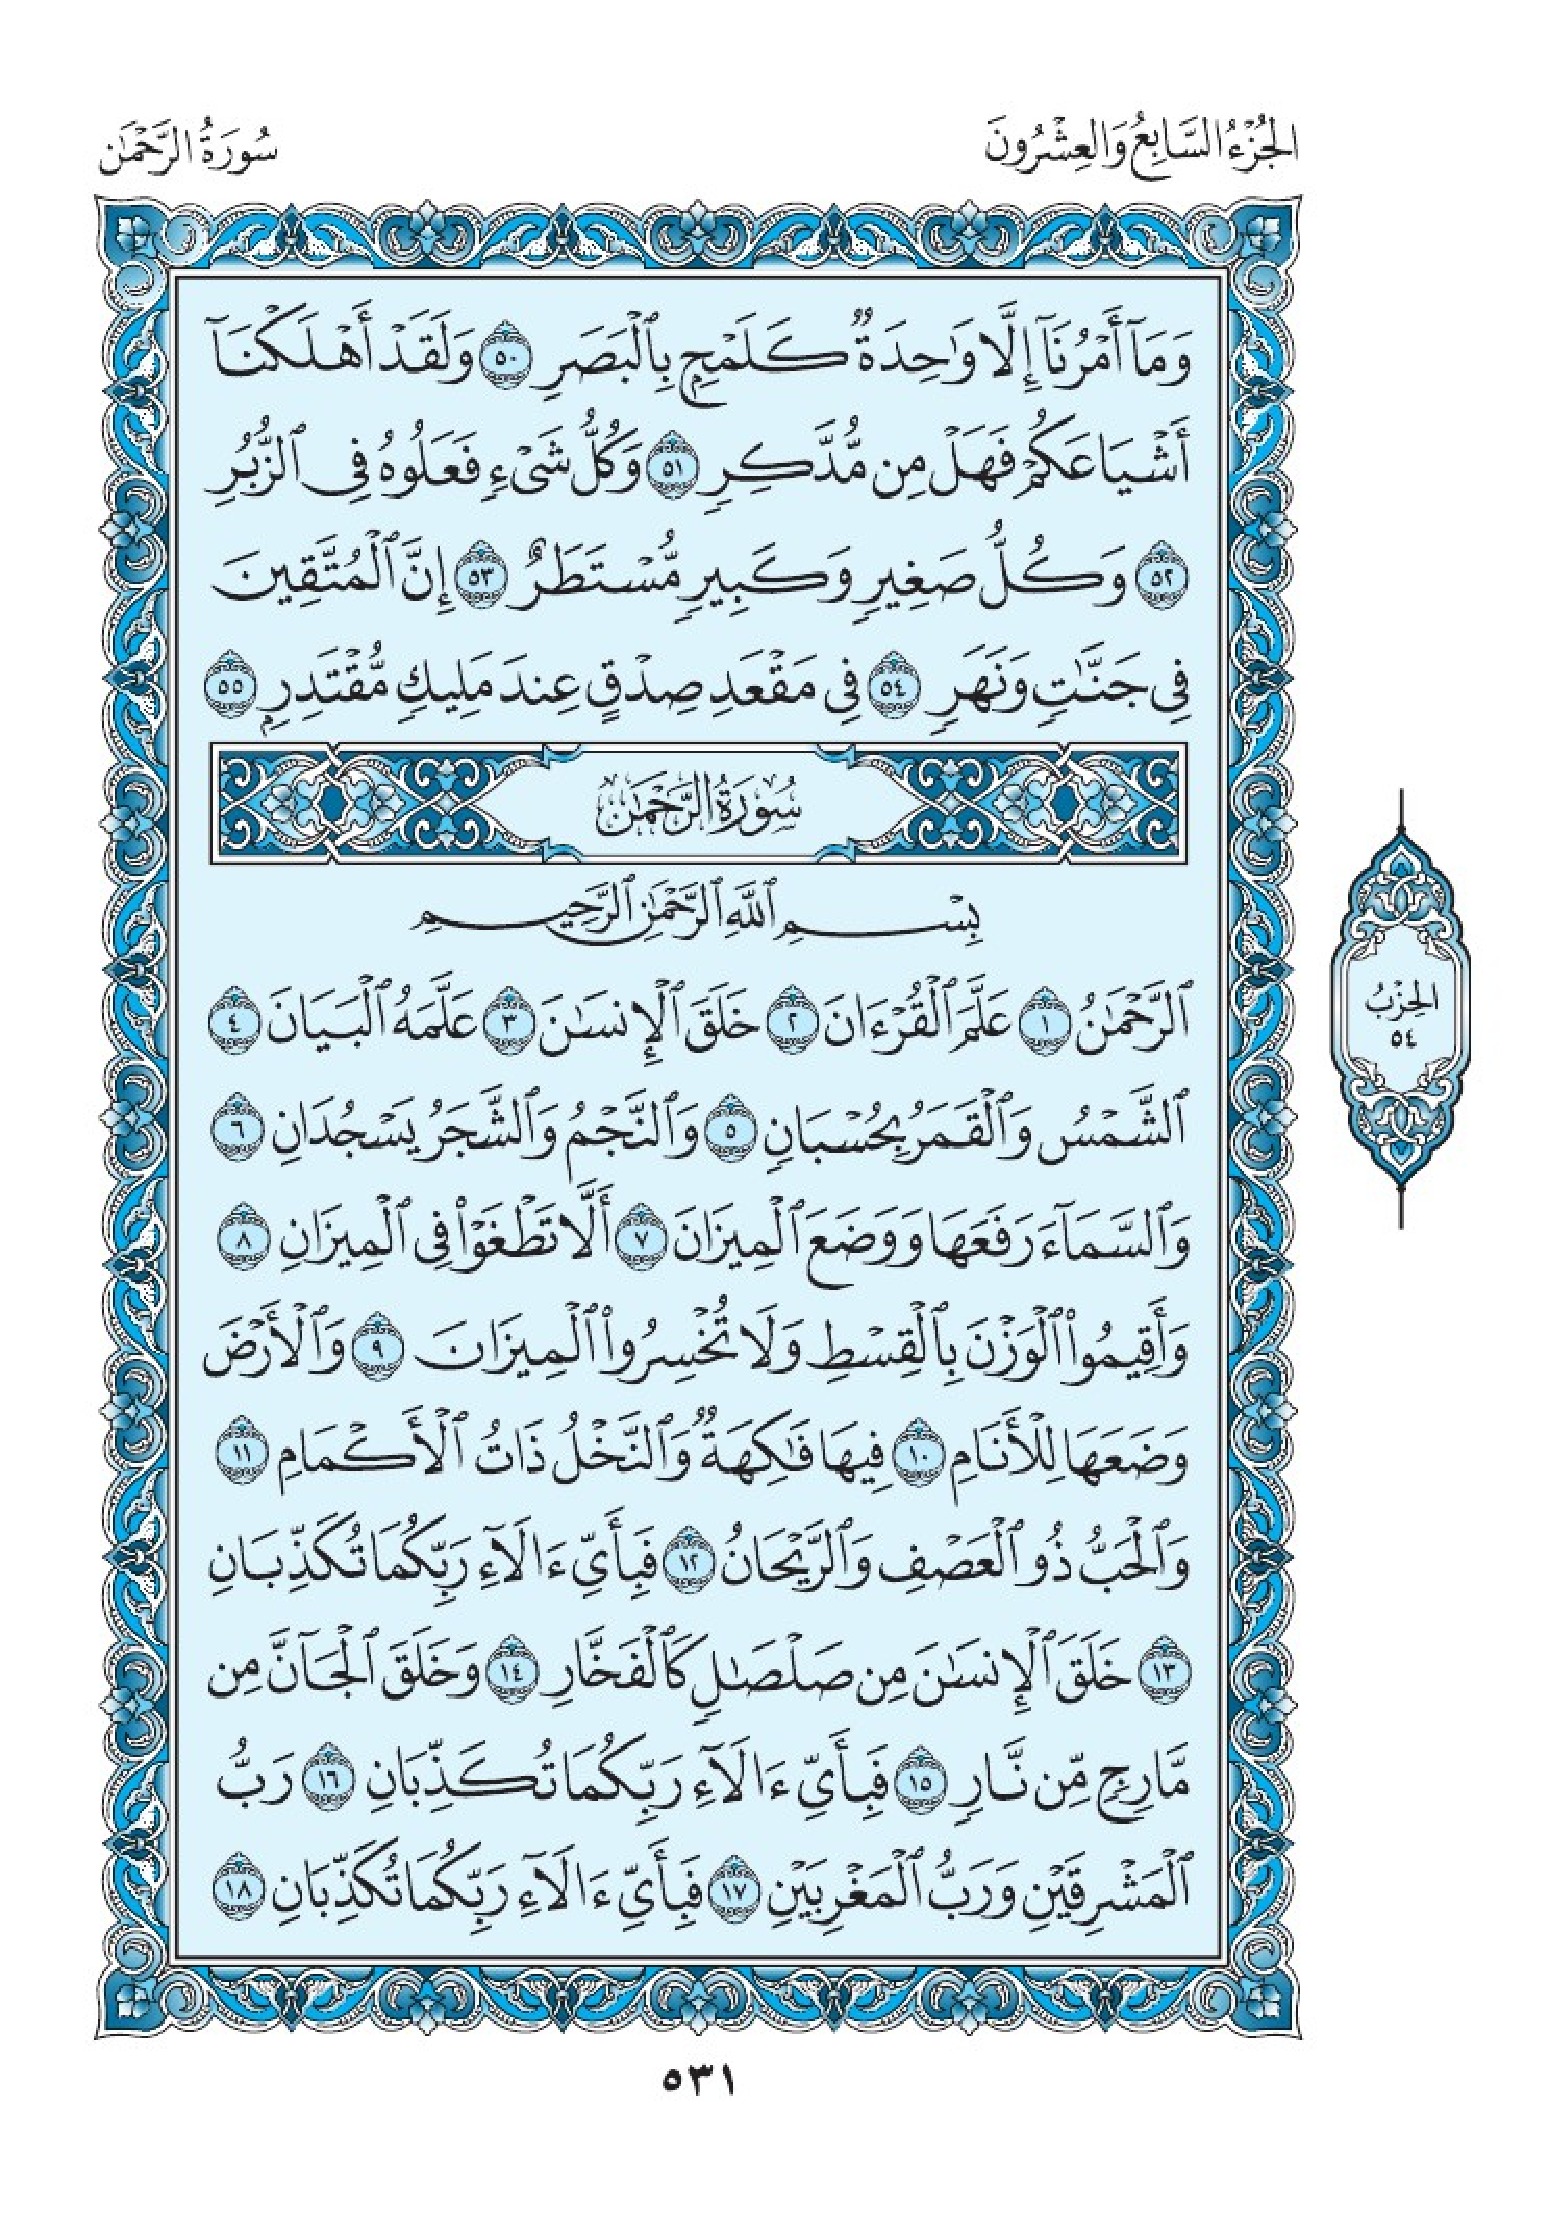 الجُزْءُ السَّابِعُ وَالعِشْرُونَ
سُورَةُ الرَّحْمَٰن
وَمَآ أَمْرُنَآ إِلَّا وَٰحِدَةٌ كَلَمْحِۭ بِٱلْبَصَرِ ٥٠ وَلَقَدْ أَهْلَكْنَآ
أَشْيَاعَكُمْ فَهَلْ مِن مُّدَّكِرٍ ٥١ وَكُلُّ شَىْءٍ فَعَلُوهُ فِى ٱلزُّبُرِ
٥٢ وَكُلُّ صَغِيرٍ وَكَبِيرٍ مُّسْتَطَرٌ ٥٣ إِنَّ ٱلْمُتَّقِينَ
فِى جَنَّٰتٍ وَنَهَرٍ ٥٤ فِى مَقْعَدِ صِدْقٍ عِندَ مَلِيكٍ مُّقْتَدِرِۭ ٥٥
سُورَةُ الرَّحْمَٰن
بِسْمِ ٱللَّهِ ٱلرَّحْمَٰنِ ٱلرَّحِيمِ
ٱلرَّحْمَٰنُ ١ عَلَّمَ ٱلْقُرْءَانَ ٢ خَلَقَ ٱلْإِنسَٰنَ ٣ عَلَّمَهُ ٱلْبَيَانَ ٤
ٱلشَّمْسُ وَٱلْقَمَرُ بِحُسْبَانٍ ٥ وَٱلنَّجْمُ وَٱلشَّجَرُ يَسْجُدَانِ ٦
وَٱلسَّمَآءَ رَفَعَهَا وَوَضَعَ ٱلْمِيزَانَ ٧ أَلَّا تَطْغَوْا۟ فِى ٱلْمِيزَانِ ٨
وَأَقِيمُوا۟ ٱلْوَزْنَ بِٱلْقِسْطِ وَلَا تُخْسِرُوا۟ ٱلْمِيزَانَ ٩ وَٱلْأَرْضَ
وَضَعَهَا لِلْأَنَامِ ١٠ فِيهَا فَٰكِهَةٌ وَٱلنَّخْلُ ذَاتُ ٱلْأَكْمَامِ ١١
وَٱلْحَبُّ ذُو ٱلْعَصْفِ وَٱلرَّيْحَانُ ١٢ فَبِأَىِّ ءَالَآءِ رَبِّكُمَا تُكَذِّبَانِ
١٣ خَلَقَ ٱلْإِنسَٰنَ مِن صَلْصَٰلٍ كَٱلْفَخَّارِ ١٤ وَخَلَقَ ٱلْجَآنَّ مِن
مَّارِجٍ مِّن نَّارٍ ١٥ فَبِأَىِّ ءَالَآءِ رَبِّكُمَا تُكَذِّبَانِ ١٦ رَبُّ
ٱلْمَشْرِقَيْنِ وَرَبُّ ٱلْمَغْرِبَيْنِ ١٧ فَبِأَىِّ ءَالَآءِ رَبِّكُمَا تُكَذِّبَانِ ١٨
الحِزْبُ
٥٤
٥٣١